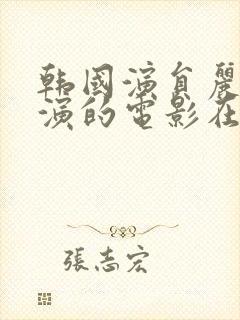 韩國演員麗
演的電影在
張志宏